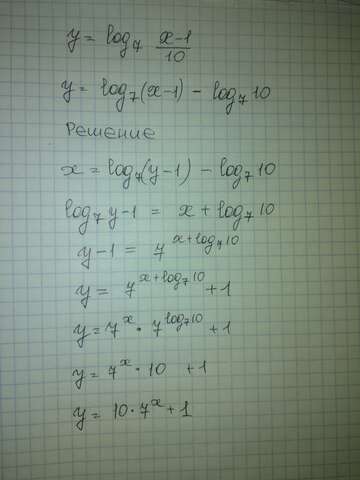 y = log₇ (x-1)/10
y = log₇(x-1) - log₇10
Решение
x = log₇(y-1) - log₇10
log₇ y-1 = x + log₇10
y-1 = 7^(x+log₇10)
y = 7^(x+log₇10) + 1
y = 7^x · 7^(log₇10) + 1
y = 7^x · 10 + 1
y = 10 · 7^x + 1